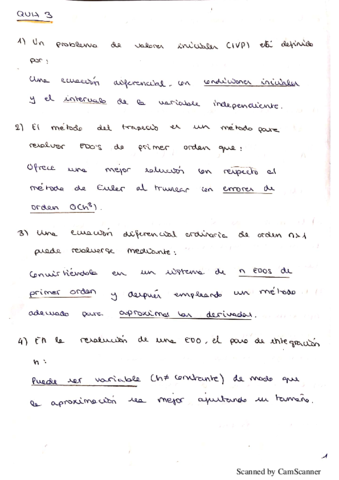 QUIZ 3
1) Un problema de valores iniciales (IVP) está definido
por:
Una ecuación diferencial, con condiciones iniciales
y el intervalo de la variable independiente.
2) El método del trapecio es un método para
resolver EDO'S de primer orden que:
Ofrece una mejor solución con respecto al
método de Euler al truncar con errores de
orden O(h³).
3) Una ecuación diferencial ordinaria de orden n>1
puede resolverse mediante:
Convirtiéndola en un sistema de n EDOS de
primer orden y después empleando un método
adecuado para aproximar las derivadas.
4) EN la resolución de una EDO, el paso de integración
h:
Puede ser variable (h≠ constante) de modo que
la aproximación sea mejor ajustando su tamaño.
1
Scanned by CamScanner